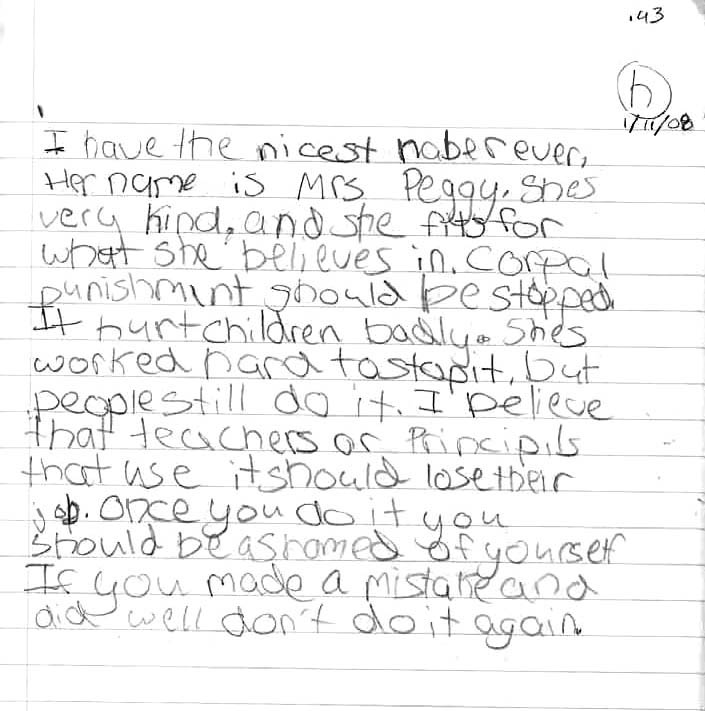 .43
h
1/11/08
I have the nicest naber ever,
Her name is Mrs Peggy. Shes
very kind, and she fits for
what she believes in. Corpal
punishmint should be stopped.
It hurt children badly. Shes
worked hard to stop it, but
people still do it. I believe
that teachers or Principils
that use it should lose their
job. Once you do it you
should be ashamed of yourself
If you made a mistake and
did well don't do it again.